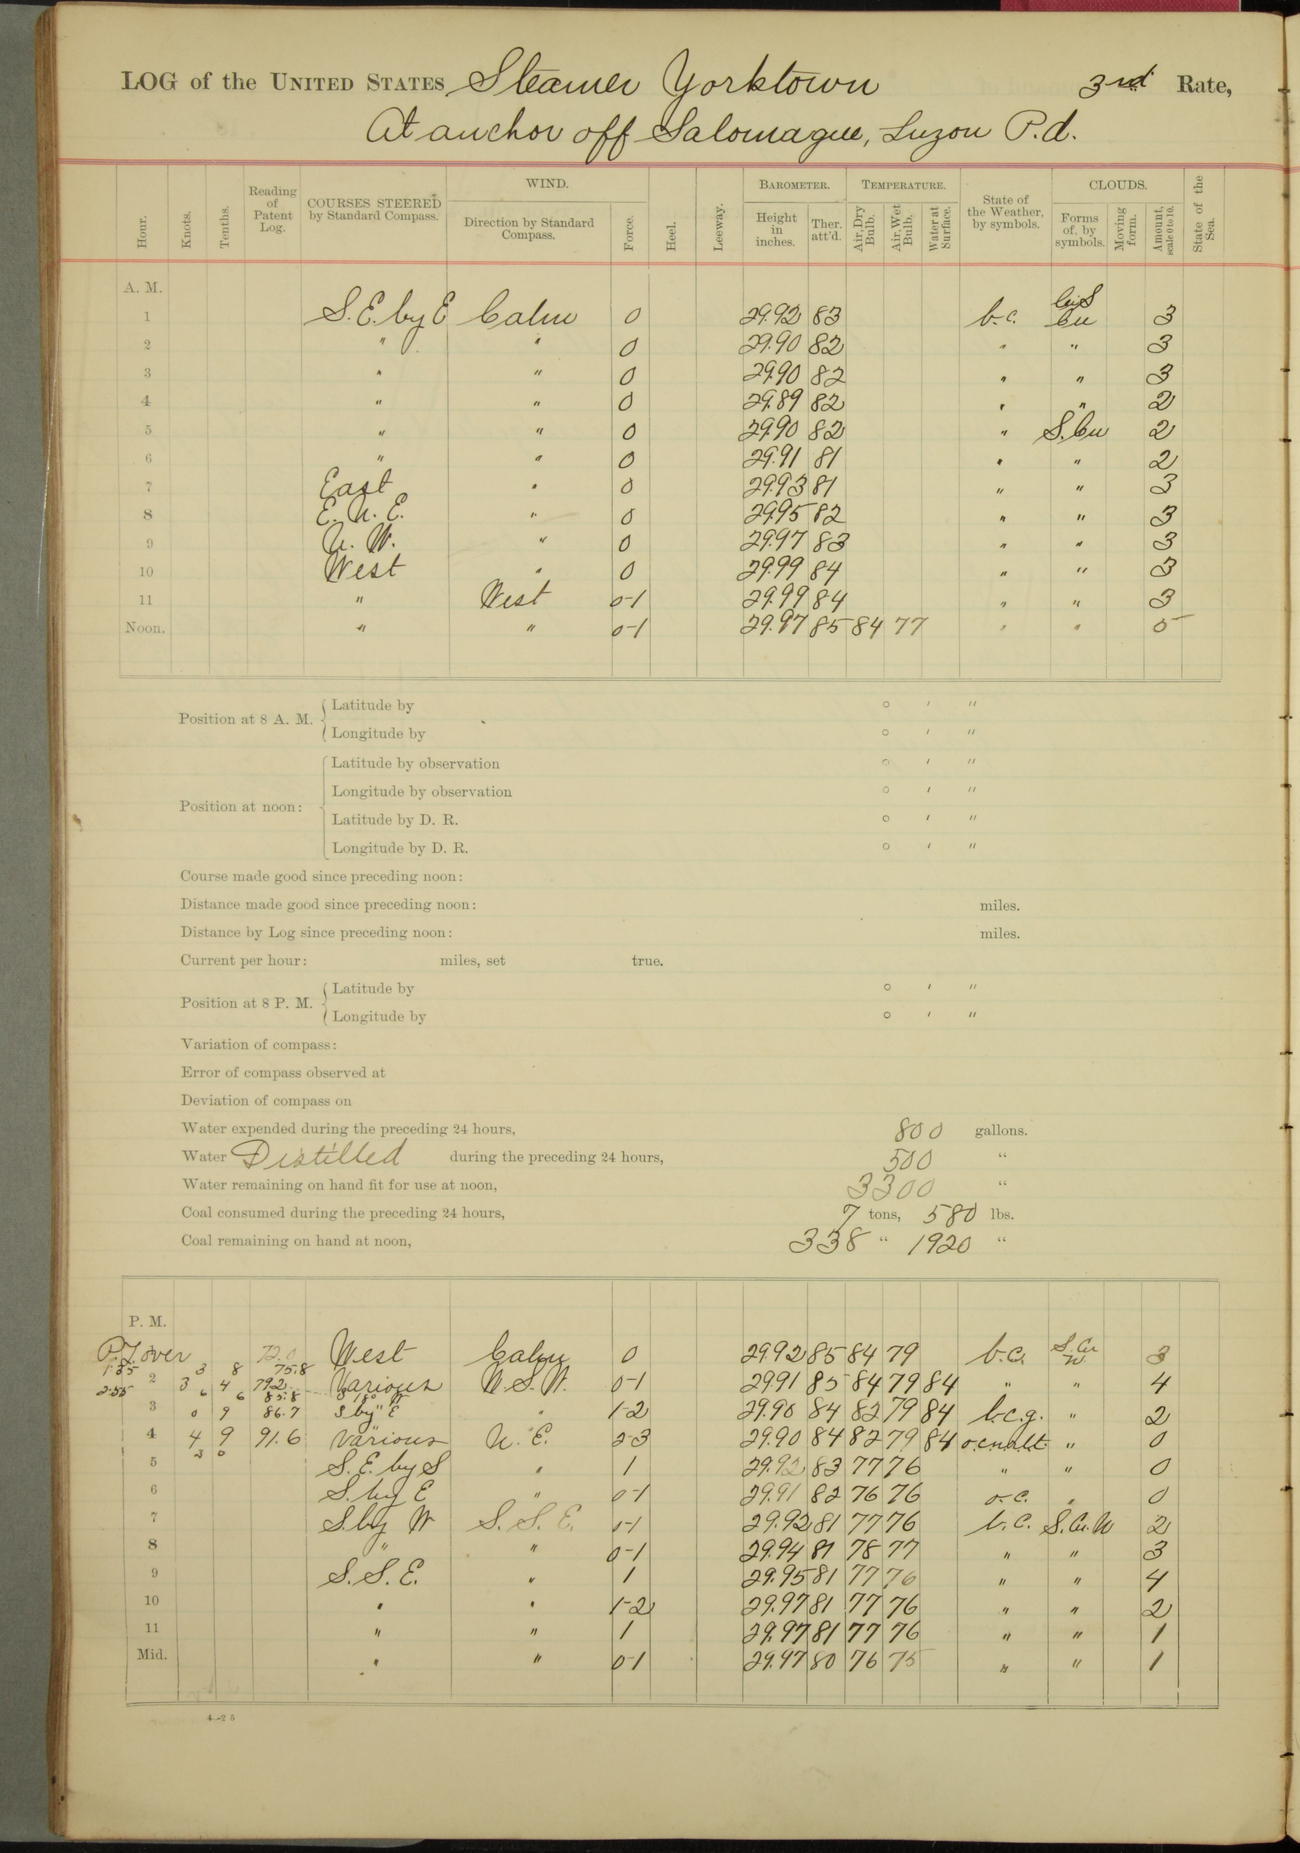 LOG of the UNITED STATES Steamer Yorktown 3rd Rate,
At anchor off Salomague, Luzon P.d.
Hour. Knots. Tenths. Reading of Patent Log. COURSES STEERED by Standard Compass. WIND. Direction by Standard Compass. Force. Heel. Leeway. BAROMETER. Height in inches. Ther. att'd. TEMPERATURE. Air, Dry Bulb. Air, Wet Bulb. Water at Surface. State of the Weather, by symbols. CLOUDS. Forms of, by symbols. Moving form. Amount, scale 0 to 10. State of the Sea.
A. M.
1 S.E. by E Calm 0 29.92 83 b.c. Ci.S Cu 3
2 " " 0 29.90 82 " " 3
3 " " 0 29.90 82 " " 3
4 " " 0 29.89 82 " " 2
5 " " 0 29.90 82 " S.Cu 2
6 " " 0 29.91 81 " " 2
7 East " 0 29.93 81 " " 3
8 E. N. E. " 0 29.95 82 " " 3
9 N. W. " 0 29.97 83 " " 3
10 West " 0 29.99 84 " " 3
11 " West 0-1 29.99 84 " " 3
Noon. " " 0-1 29.97 85 84 77 " " 5
Position at 8 A. M. Latitude by ° ′ ″
Longitude by ° ′ ″
Position at noon: Latitude by observation ° ′ ″
Longitude by observation ° ′ ″
Latitude by D. R. ° ′ ″
Longitude by D. R. ° ′ ″
Course made good since preceding noon:
Distance made good since preceding noon: miles.
Distance by Log since preceding noon: miles.
Current per hour: miles, set true.
Position at 8 P. M. Latitude by ° ′ ″
Longitude by ° ′ ″
Variation of compass:
Error of compass observed at
Deviation of compass on
Water expended during the preceding 24 hours, 800 gallons.
Water Distilled during the preceding 24 hours, 500 "
Water remaining on hand fit for use at noon, 3300 "
Coal consumed during the preceding 24 hours, 7 tons, 580 lbs.
Coal remaining on hand at noon, 338 " 1920 "
P. M.
P.L. over 72.0 West Calm 0 29.92 85 84 79 b.c. S.Cu N 3
1:55 3 8 75.8
2 3 4 79.2 Various W.S.W. 0-1 29.91 85 84 79 84 " " 4
2:55 6 6 85.8 S 18° W
3 0 9 86.7 S by E " 1-2 29.90 84 82 79 84 b.c.g. " 2
4 4 9 91.6 Various N. E. 2-3 29.90 84 82 79 84 " 0
3 0
5 S. E. by S " 1 29.92 83 77 76 " " 0
6 S. by E " 0-1 29.91 82 76 76 o.c. " 0
7 S. by W S. S. E. 0-1 29.92 81 77 76 b.c. S.Cu.N 2
8 " " 0-1 29.94 81 78 77 " " 3
9 S. S. E. " 1 29.95 81 77 76 " " 4
10 " " 1-2 29.97 81 77 76 " " 2
11 " " 1 29.97 81 77 76 " " 1
Mid. " " 0-1 29.97 80 76 75 " " 1
4—25